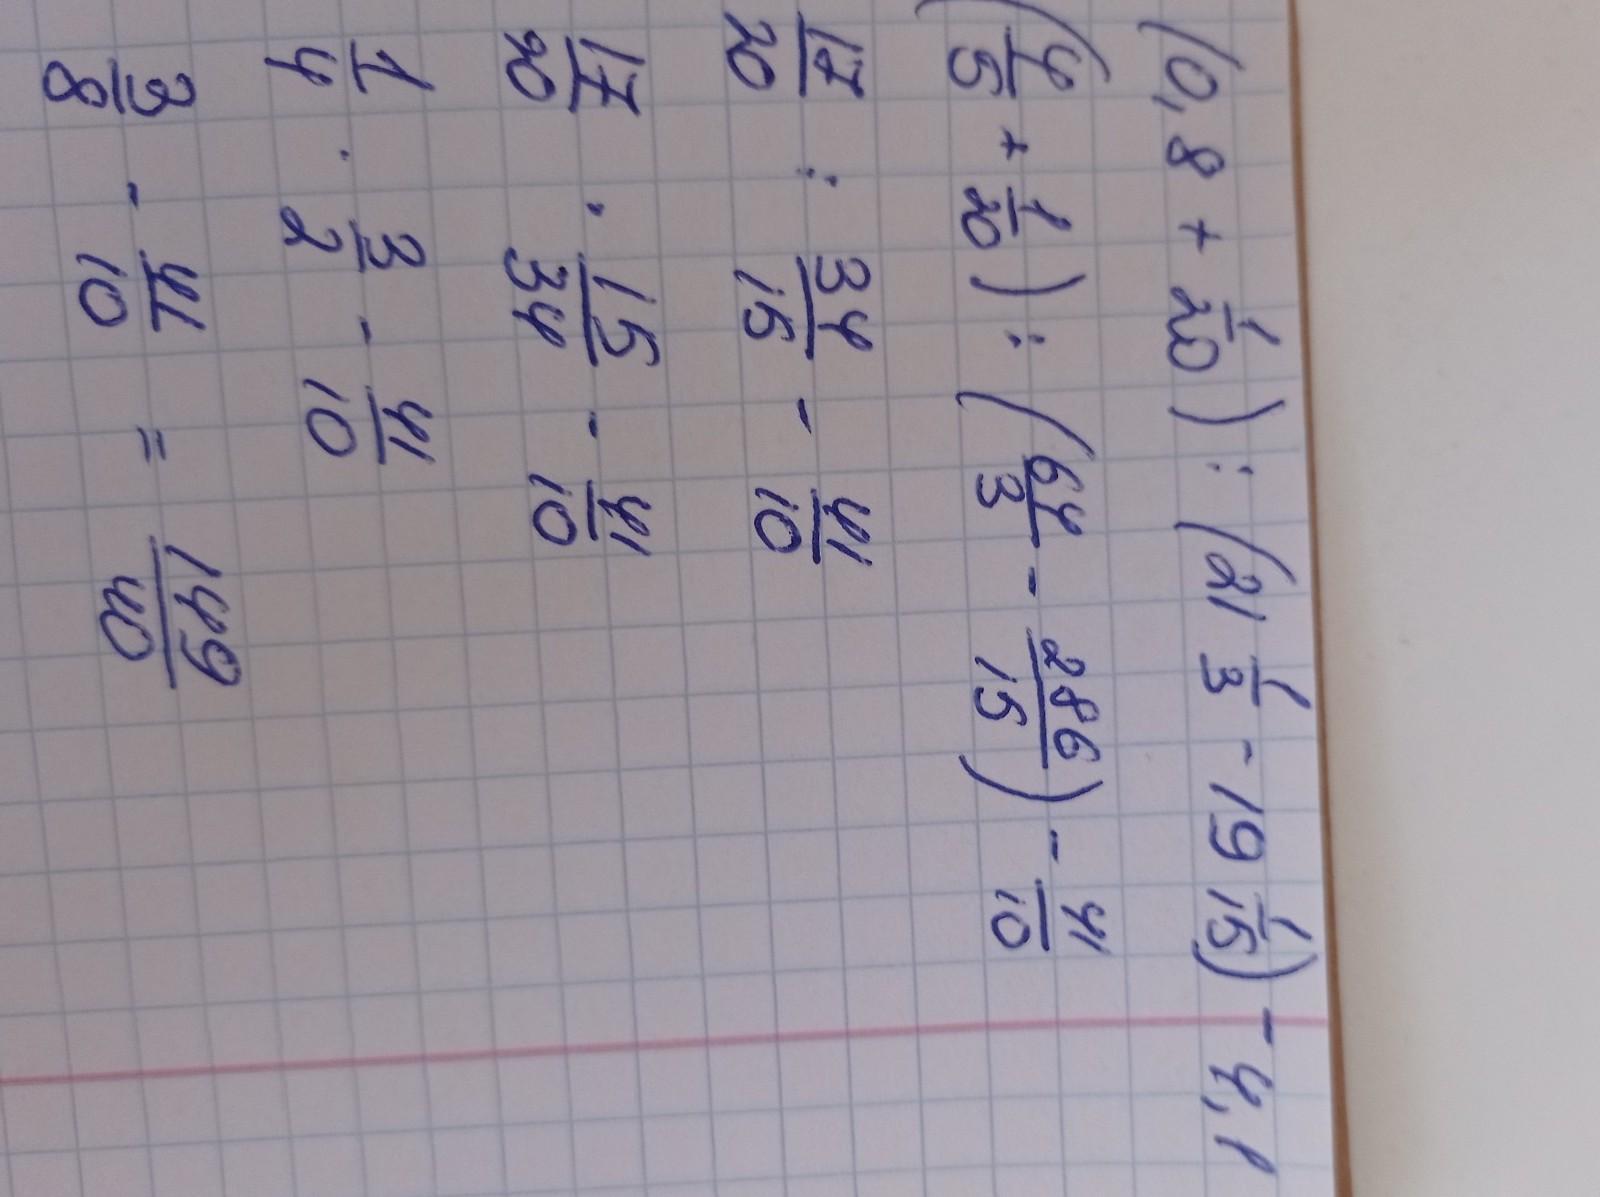 (0,8 + 1/20) : (21 1/3 - 19 1/15) - 4,1
(4/5 + 1/20) : (64/3 - 286/15) - 41/10
17/20 : 34/15 - 41/10
17/20 · 15/34 - 41/10
1/4 · 3/2 - 41/10
3/8 - 41/10 = 149/40